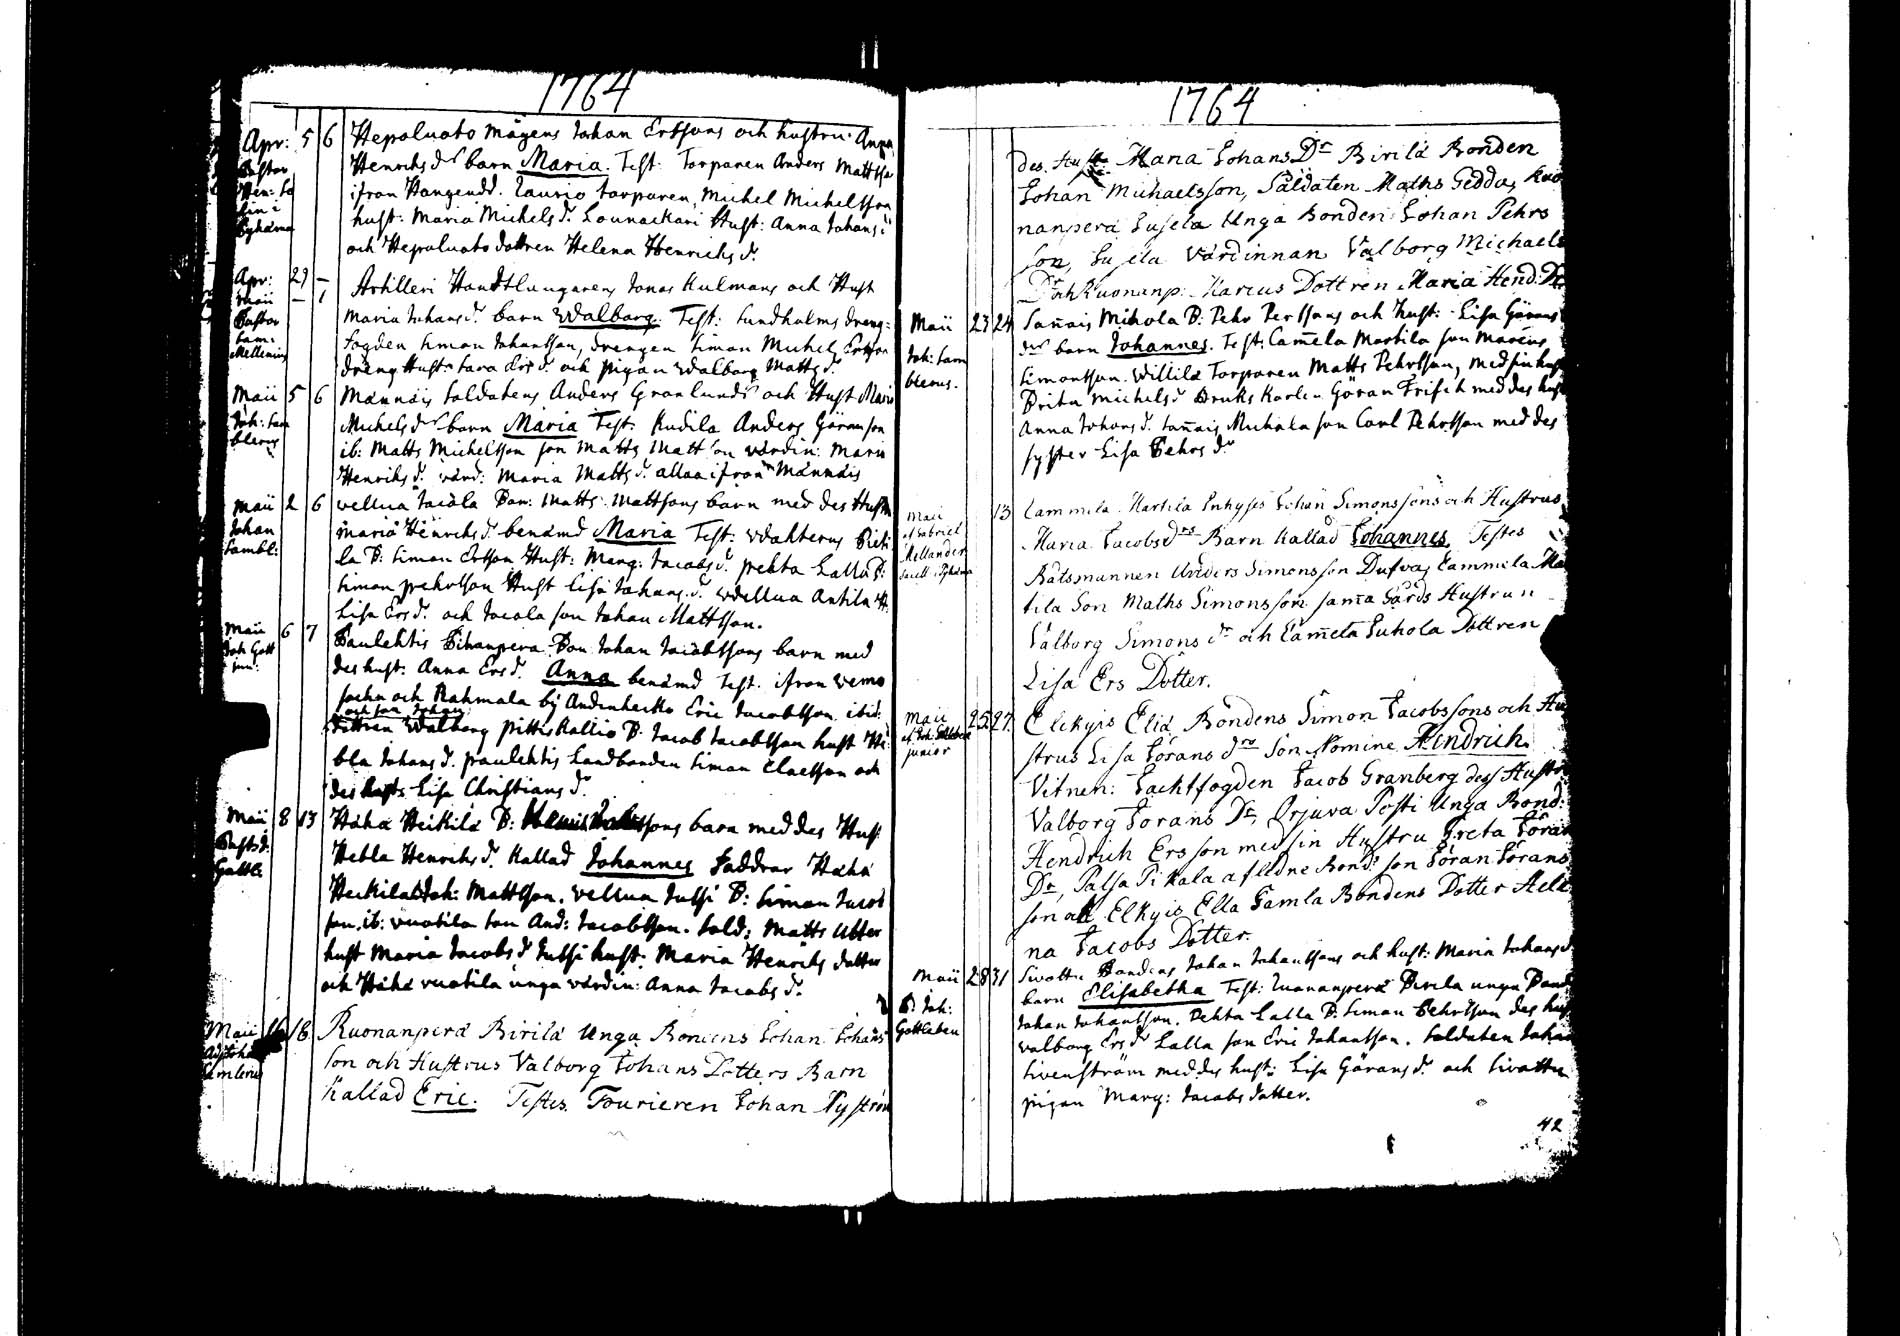 1764
Apr: 5 6 Hepoluoto mågens Johan Ersssons och hustru Anna
Pastor Henrichs dr barn Maria. Test: Torparen Anders Mattss
Hen: ifrån Hangendd. Laurio torparen, Michel Michelsson
hust: Maria Michels dr. Lounackari Hust: Anna Johans
och Hepoluoto dottren Helena Henrichs dr.
Apr: 29 –
Maii – 1
Artilleri Handtlangarens Jonas Kulmans och Hust
Pastor Maria Johans dr. barn Walborg. Test: Lundholms dreng-
Sam: fogden Simon Johansson, drengen Simon Michel
Mellenius dräng Hust: Sara Ers dr. och pigan Walborg Matts dr.
Maii 5 6 Männäis Soldatens Anders Granlunds och Hust Maria
Joh: Sam Michels dr barn Maria Test: Kudila Anders Göransson
blerus ib: Matts Michelsson son Matts Mattson värdin: Maria
Henrichs dr. värd: Maria Matts dr. allaa ifrån Männäis
Maii 2 6 Vellua Jacola Bon: Matts Mattsons barn med des Hustru
Johan Maria Henrichs dr. benämd Maria Test: Wakterus Pieti
Sambl: la B: Simon Ersson Hust: Marg: Jacobs dr. pehta Lalla B:
Simon pehrsson Hust Lisa Johans dr. Wellua Antila H.
Lisa Ers dr. och Jacola son Johan Mattsson.
Maii 6 7 Paulehtis Pihanpera Bon Johan Jacobssons barn med
Joh: Gott des hust: Anna Ers dr. Anna benämd Test. ifrån Vemo
jun: sochn och Rahmala bÿ Eric Jacobsson ibid:
och son Johan
dottren Walborg pittiskallio B. Jacob Jacobsson hust He
bla Johans dr. paulehtis Landbonden Simon Claesson och
des hust: Lisa Christians dr.
Maii 8 13 Hähä Heikilä B: barn med des Hust
Hebla Henrichs dr. kallad Johannes Faddrar Hähä
Gottle Heikilä Joh: Mattsson. Vellua Jussi B: Simon Jacob
son. ib: Vuotila son And: Jacobsson. Sold: Matts Utter
hust Maria Jacobs dr Jussi hust: Maria Henrichs dotter
och Hähä Vuotila unga värdin: Anna Jacobs dr.
Maii 16 18 Ruonanperä Birilä Unga Bondens Johan Johans
son och Hustrus Valborg Johans Dotters Barn
kallad Eric. Testes. Fourieren Johan Nyström
1764
des. Hust: Maria Johans Dr Birilä Bonden
Johan Michaelsson, Saldaten Maths Gedda, Ruo
nanperä Susela Unga Bonden Johan Pehrs
son, Susela Värdinnan Valborg Michaels
Dr och Ruonanp: Marcus Dottren Maria Hend: Dr
Maii 23 24 Sañais Mikola B: Pehr Perssons och Hust: Lisa Görans
dr barn Johannes. Test: Cam̄ela Martila son Marcus
Joh: Sam Simonsson. Willilä Torparen Matts Pehrsson, med sin hust
blerus. Brita Michels dr Bruks Karlen Göran Frisk med des hust
Anna Johans dr. Sañais Michola son Carl Pehrsson med des
syster Lisa Pehrs dr
Maii 13 Cammila Martila Inhyses Johan Simonssons och Hustrus
Gabriel Maria Jacobs drs Barn kallad Johannes. Testes
Mellander Båtsmannen Anders Simonsson Dufva, Cammila Mar
tila Son Maths Simonsson sam̄a Gårds Hustrun
Valborg Simons dr och Cam̄ela Juhola Dottren
Lisa Ers Dotter.
Maii 25 27. Elckyis Elia Bondens Simon Jacobssons och Hu
strus Lisa Jörans drs Son Nomine Hendrich.
junior Vitnen: Jachtfogden Jacob Granberg dess Hustr
Valborg Jorans Dr, Orjuva Posti Unga Bond:
Hendrich Ersson med sin Hustru Greta Jöran
Dr, Palsa Pikala afledne Bond: son Jöran Jörans
son och Elkyis Ella Gamla Bondens Dotter Hele
na Jacobs Dotter.
Maii 28 31 Sivottu Bondens Johan Johanssons och hust: Maria Johans d.
barn Elisabetha Test: Ruonanperä Birila unga Bond
B: Joh: Johan Johansson. Pehta Lalla B. Simon Pehrsson des hust
Gottleben Valborg Ers dr Lalla son Eric Johansson. Soldaten Johan
Sivenström med des hust: Lisa Görans dr. och Sivottu
pigan Marg: Jacobs dotter.
42